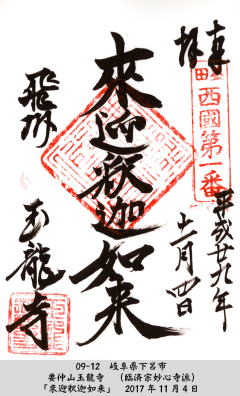 奉拝
西國第一番
平成廿九年
十一月四日
來迎釈迦如来
飛州
玉龍寺
09-12 岐阜県下呂市
要仲山玉龍寺 (臨済宗妙心寺派)
「來迎釈迦如来」 2017年11月4日